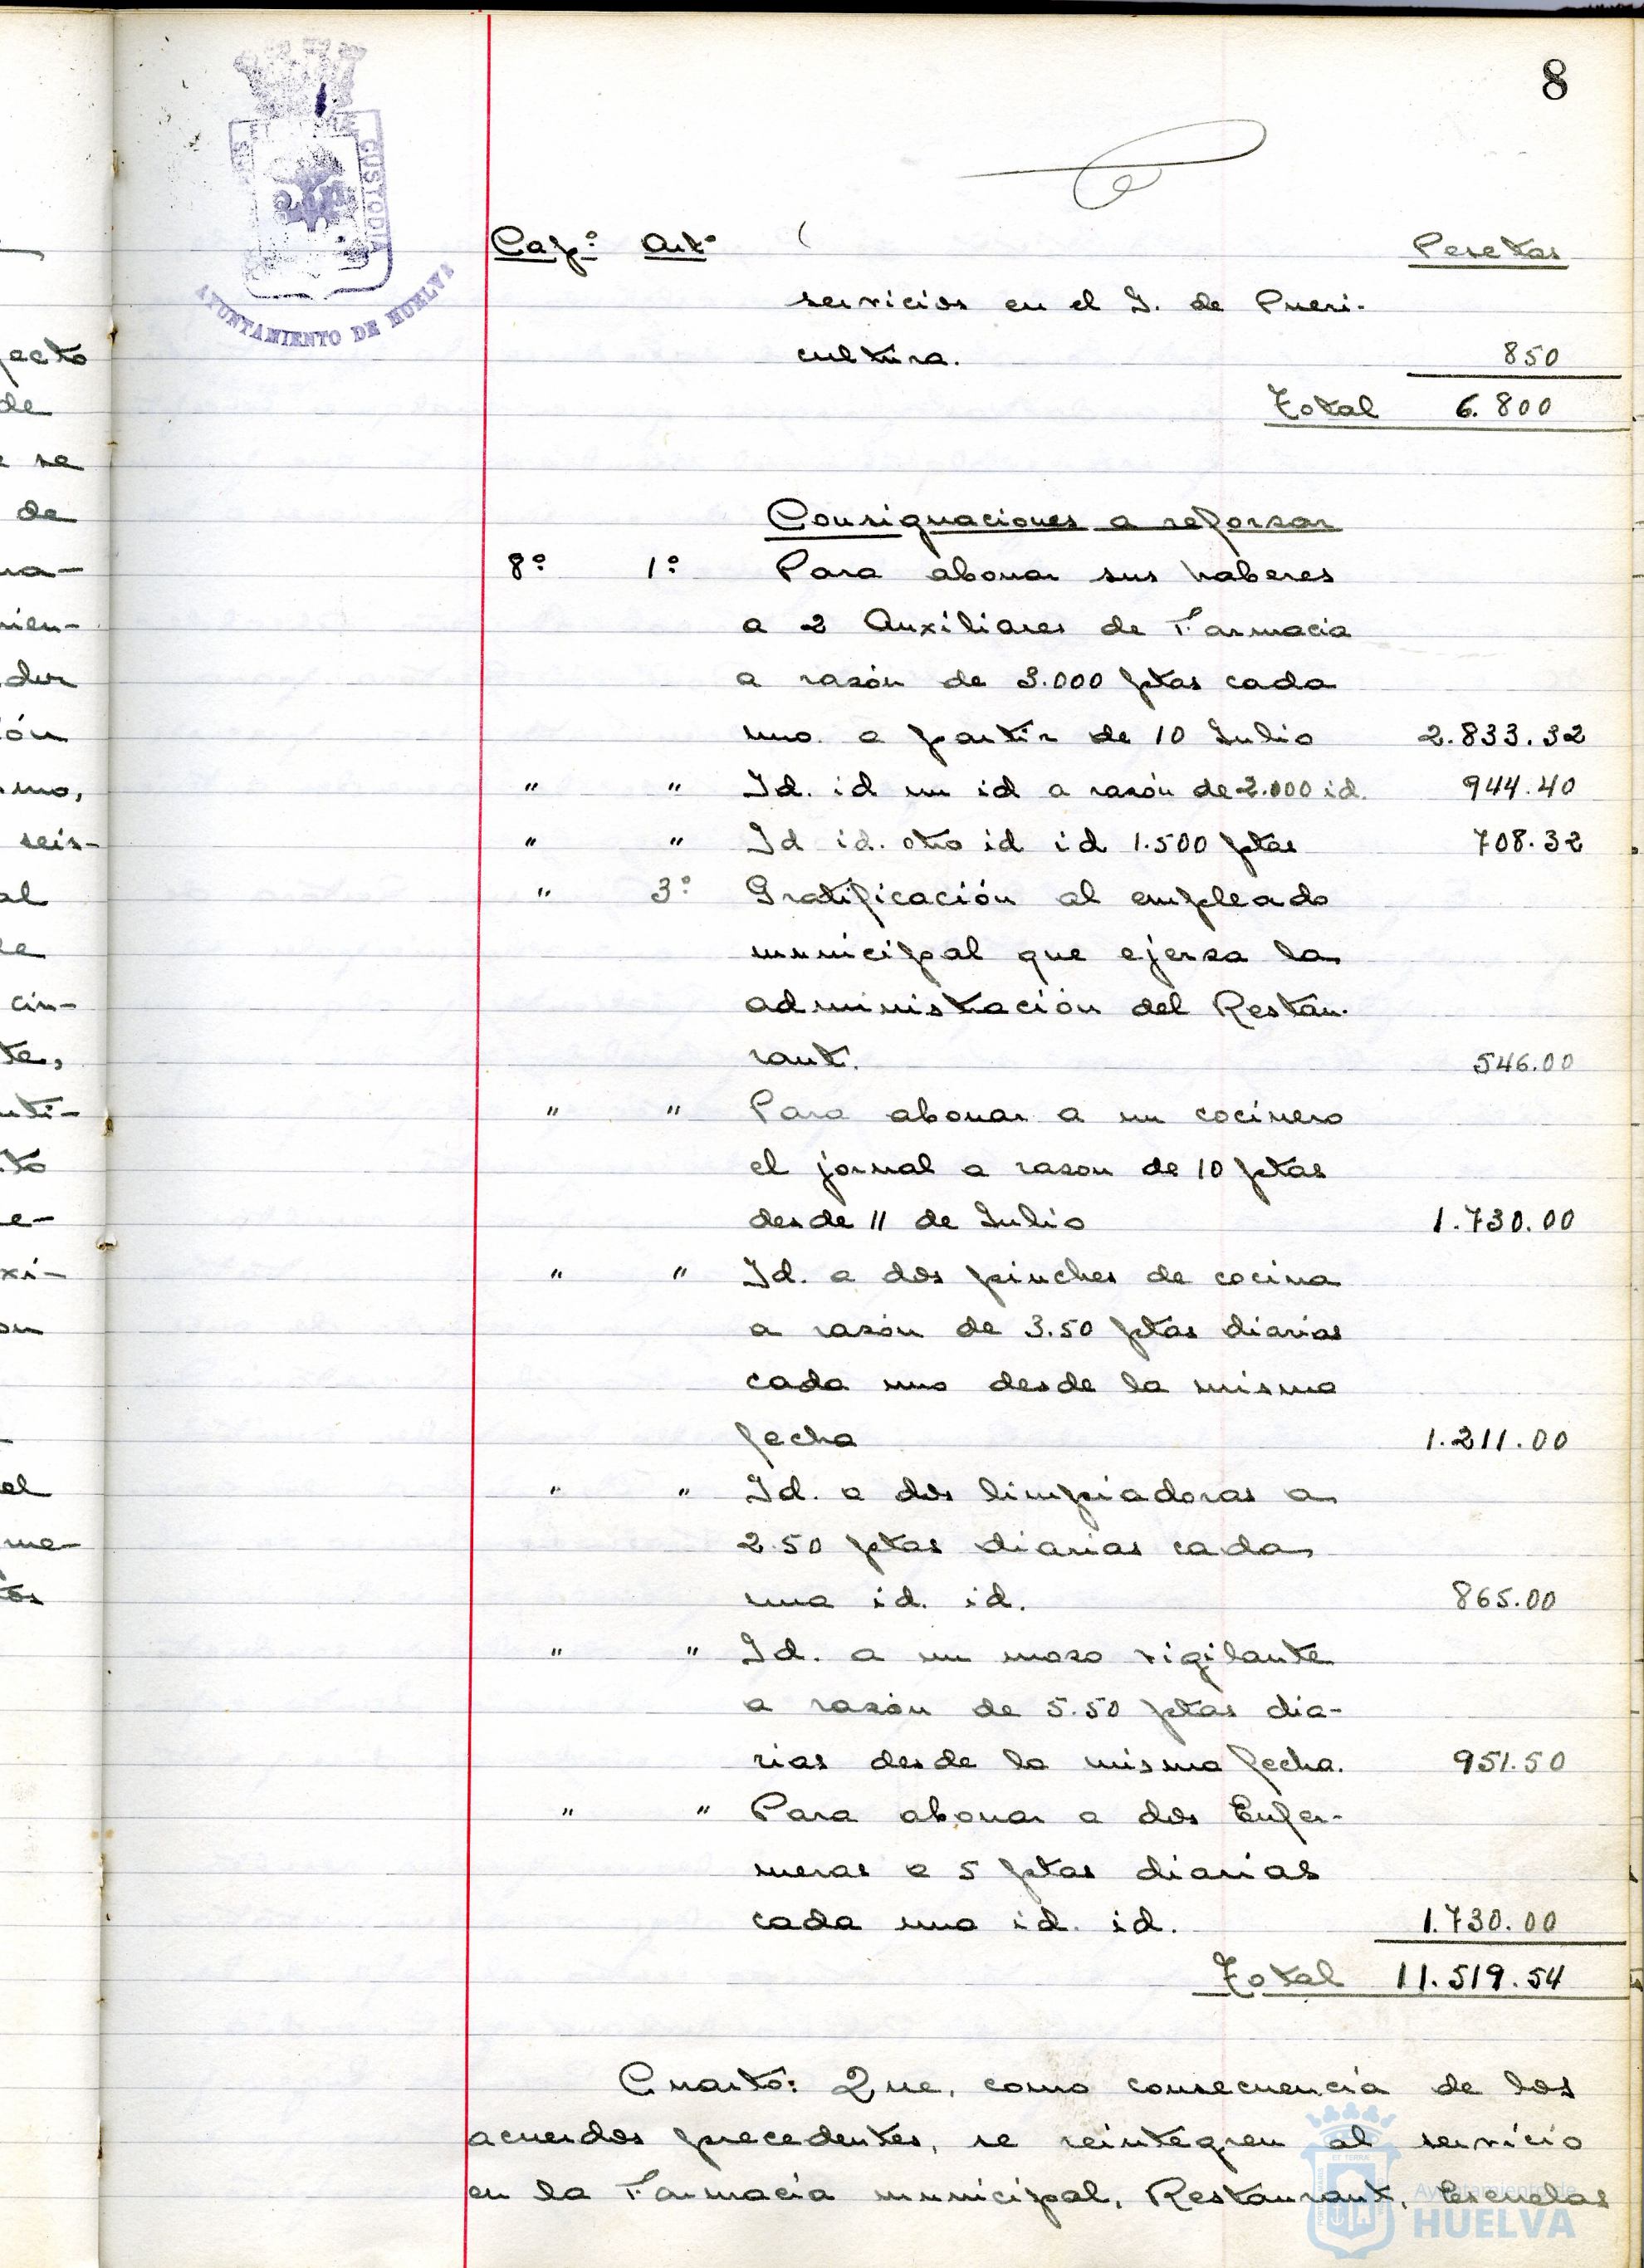 8
CUSTODIA
AYUNTAMIENTO DE HUELVA
Cap.º Art.º Pesetas
servicios en el I. de Pueri-
cultura. 850
Total 6.800
Consignaciones a reforsar
8º 1º Para abonar sus haberes
a 2 Auxiliares de Farmacia
a rasón de 3.000 ptas cada
uno a partir de 10 Julio 2.833.32
" " Id. id un id a rasón de 2.000 id. 944.40
" " Id id. otro id id 1.500 ptas 708.32
" 3º Gratificación al empleado
municipal que ejersa la
administración del Restau-
rant. 546.00
" " Para abonar a un cocinero
el jornal a rason de 10 ptas
desde 11 de Julio 1.730.00
" " Id. a dos pinches de cocina
a rasón de 3.50 ptas diarias
cada uno desde la misma
fecha 1.211.00
" " Id. a dos limpiadoras a
2.50 ptas diarias cada
una id. id. 865.00
" " Id. a un moso vigilante
a rasón de 5.50 ptas dia-
rias desde la misma fecha. 951.50
" " Para abonar a dos Enfer-
meras a 5 ptas diarias
cada una id. id. 1.730.00
Total 11.519.54
Cuarto: Que, como consecuencia de los
acuerdos precedentes, se reintegren al servicio
en la Farmacia municipal, Restaurant, Escuelas
Ayuntamiento de
HUELVA